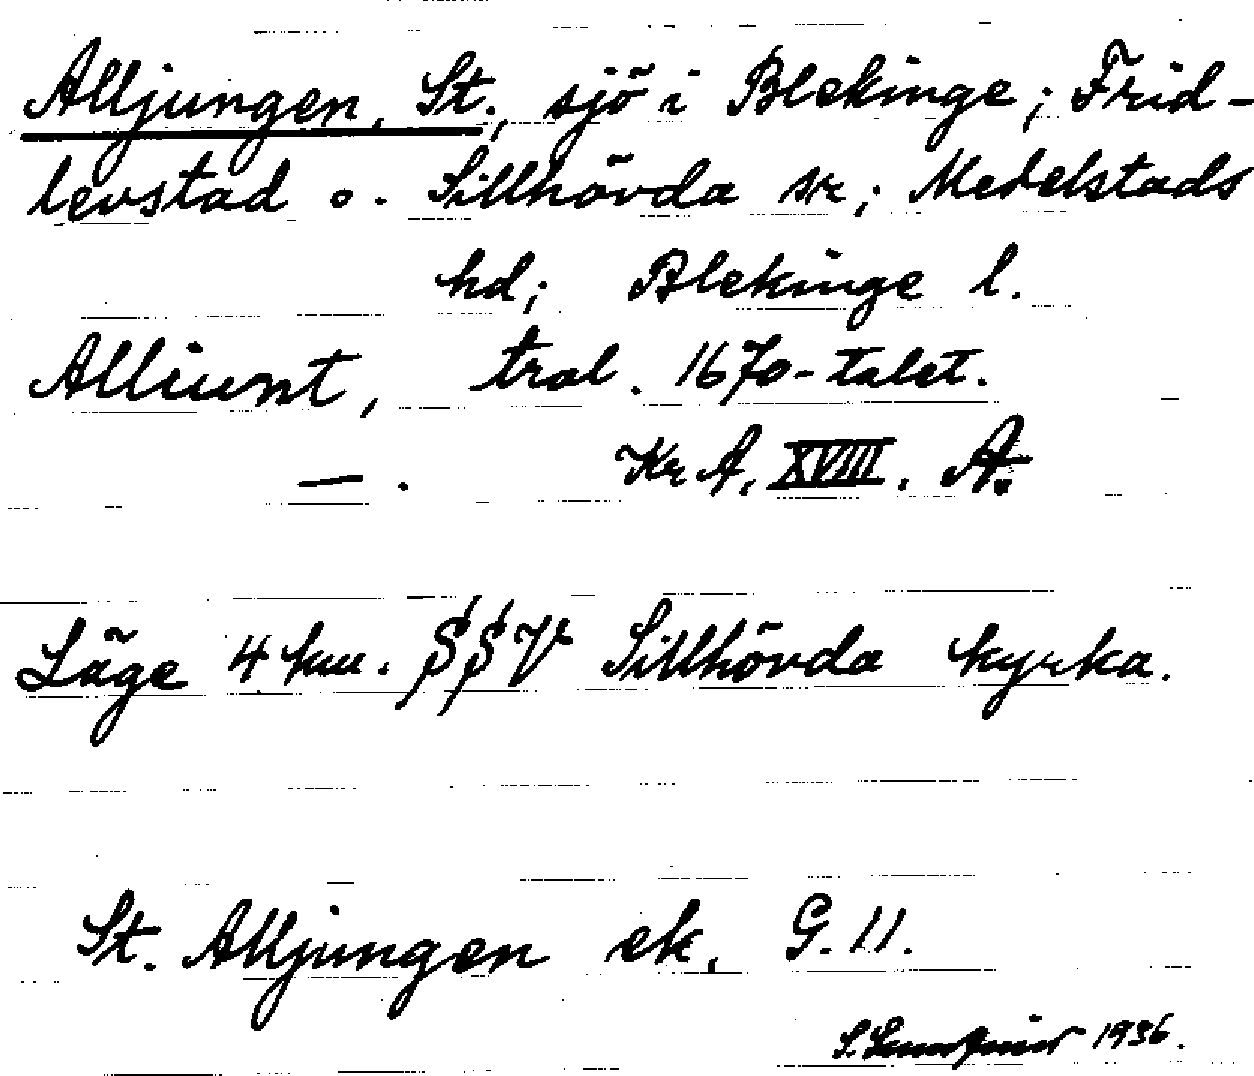 Alljungen, St., sjö i Blekinge; Frid-
levstad o. Sillhövda sr; Medelstads
hd; Blekinge l.
Alliunt, trol. 1670-talet.
— . KrA. XVIII. A.
Läge 4 km. SSV Sillhövda kyrka.
St. Alljungen ek. G. 11.
1936.